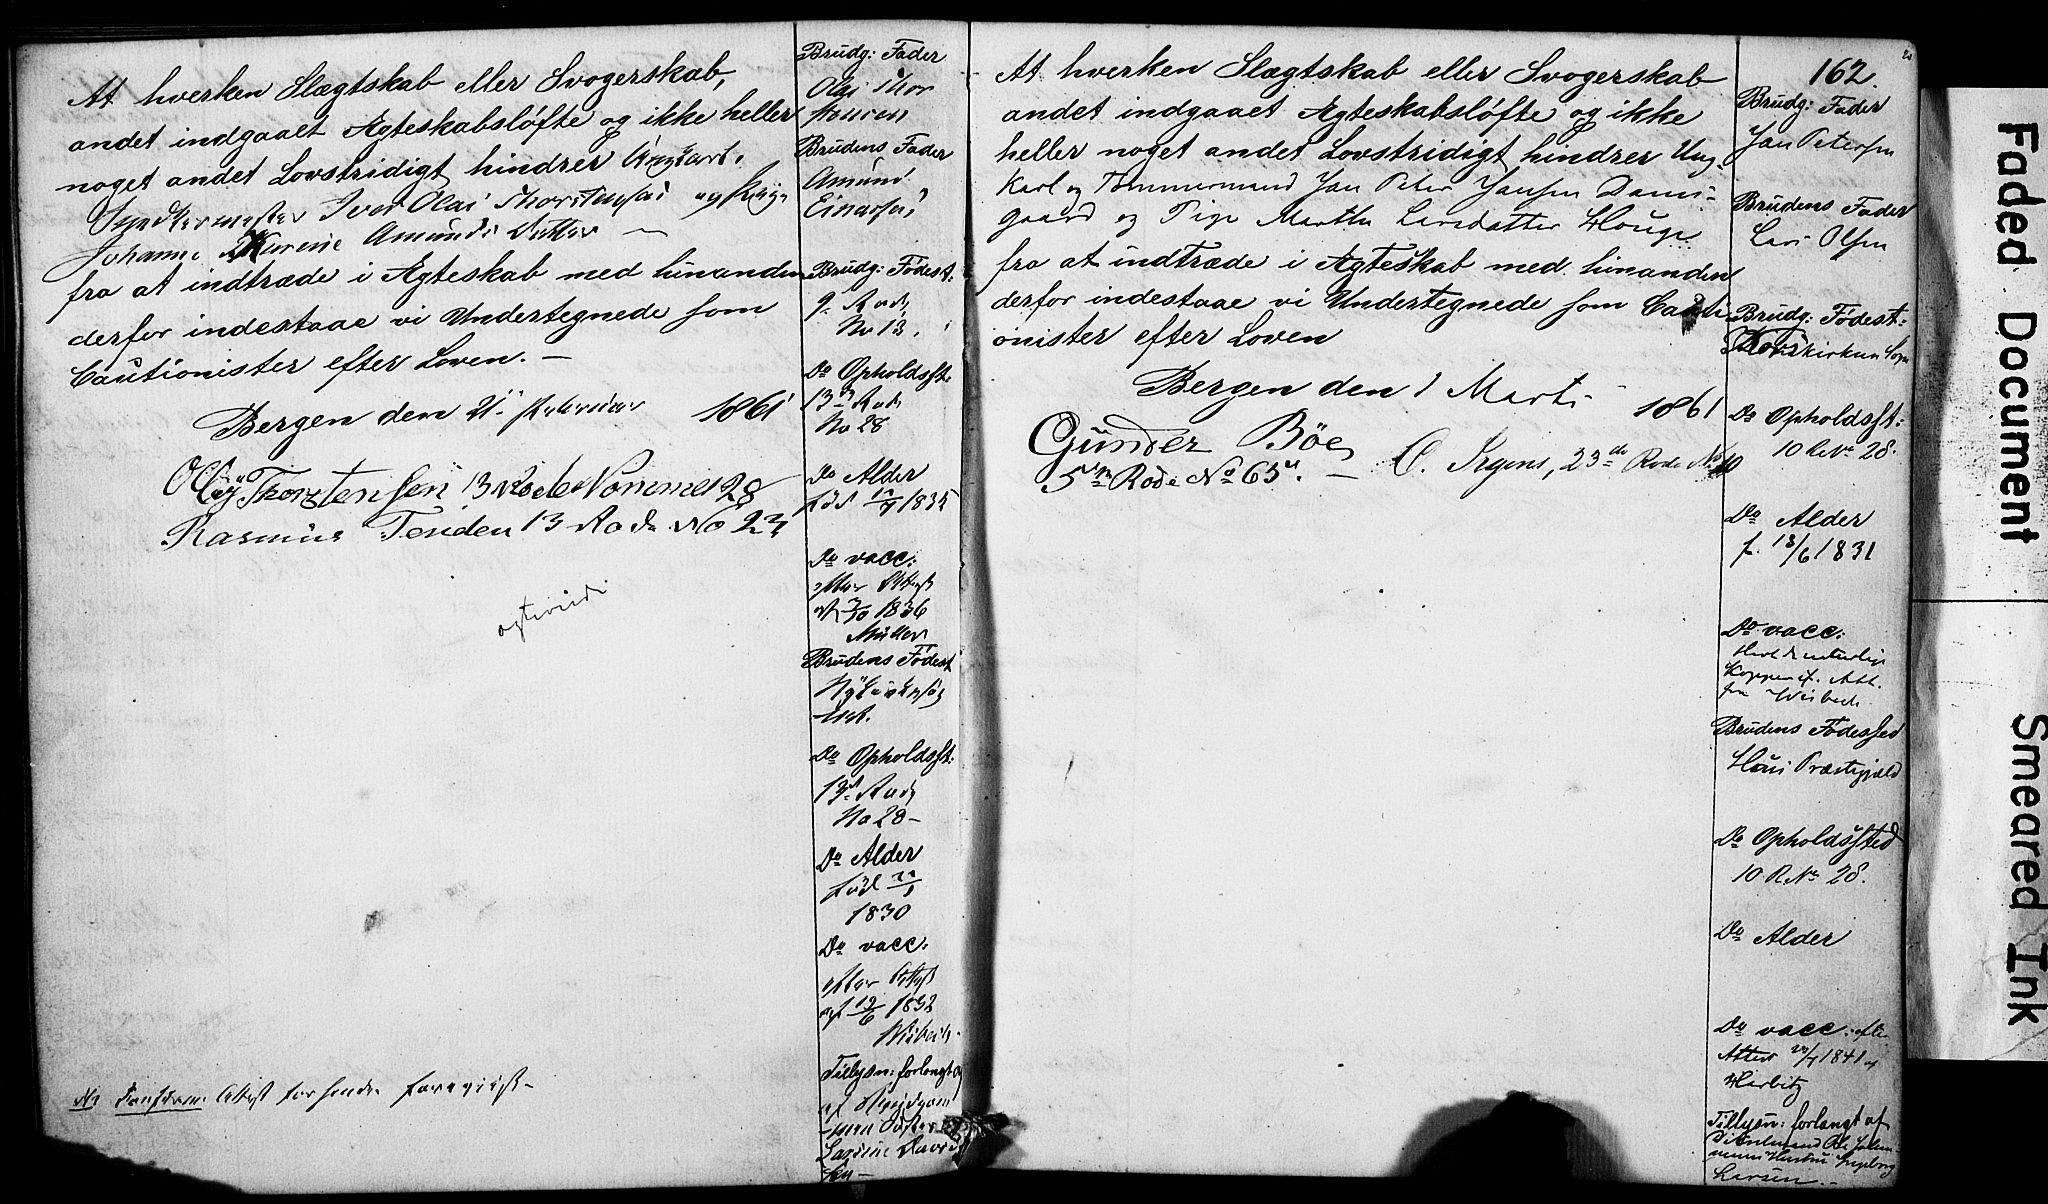 At hverken Slægtskab eller Svogerskab,
andet indgaaet Ægteskabsløfte og ikke heller
noget andet Lovstridigt hindrer Ungkarl
Iver Olai og Pige
Johanne Amunds Datter
fra at indtræde i Ægteskab med hinanden
derfor indestaae vi Undertegnede som
Cautionister efter Loven. —
Bergen den 21 Februar 1861
Thorstensen 13 Rode Nommer 28
Rasmus 13 Rode No 23
Brudg: Fader
Olai Thor
Brudens Fader
Amund
Einarsen
Brudg: Fødest:
9. Rode
No 13.
Do Opholdsst:
13de Rode
No 28
Do Alder
født 1835
Do vacc:
efter Attest
1836
Müller
Brudens Fødest
Do Opholdsst:
13de Rode
No 28 —
Do Alder
født
1830
Do vacc:
efter Attest
af 12/6 1832
Wisbech
Tillysn: forlangt
af
Larine
Attest foreviist —
162.
At hverken Slægtskab eller Svogerskab
andet indgaaet Ægteskabsløfte og ikke
heller noget andet Lovstridigt hindrer Ung
Karl og Tømmermand Jan Peter Jansen Dams-
gaard og Pige Martha Larsdatter Houge
fra at indtræde i Ægteskab med hinanden
derfor indestaae vi Undertegnede som Cauti
onister efter Loven
Bergen den 1 Marts 1861
Gunder Böe
5te Rode No 65. — O. Irgens, 23de Rode No 10
Brudg: Fader
Jan Petersen
Brudens Fader
Lars Olsen
Brudg: Fødest:
Korskirkens Sogn
Do Opholdsst:
10 R. No 28.
Do Alder
f. 18/6 1831
Do vacc:
Havt de naturlige
Kopper if. Att.
fra Wisbech
Brudens Fødested
Hous Præstegjæld
Do Opholdssted
10 R. No 28.
Do Alder
Do vacc: efter
Attest 1841 af
Harbitz
Tillysn: forlangt af
Hustru Ingeborg
Larsen. —
Faded Document
Smeared Ink